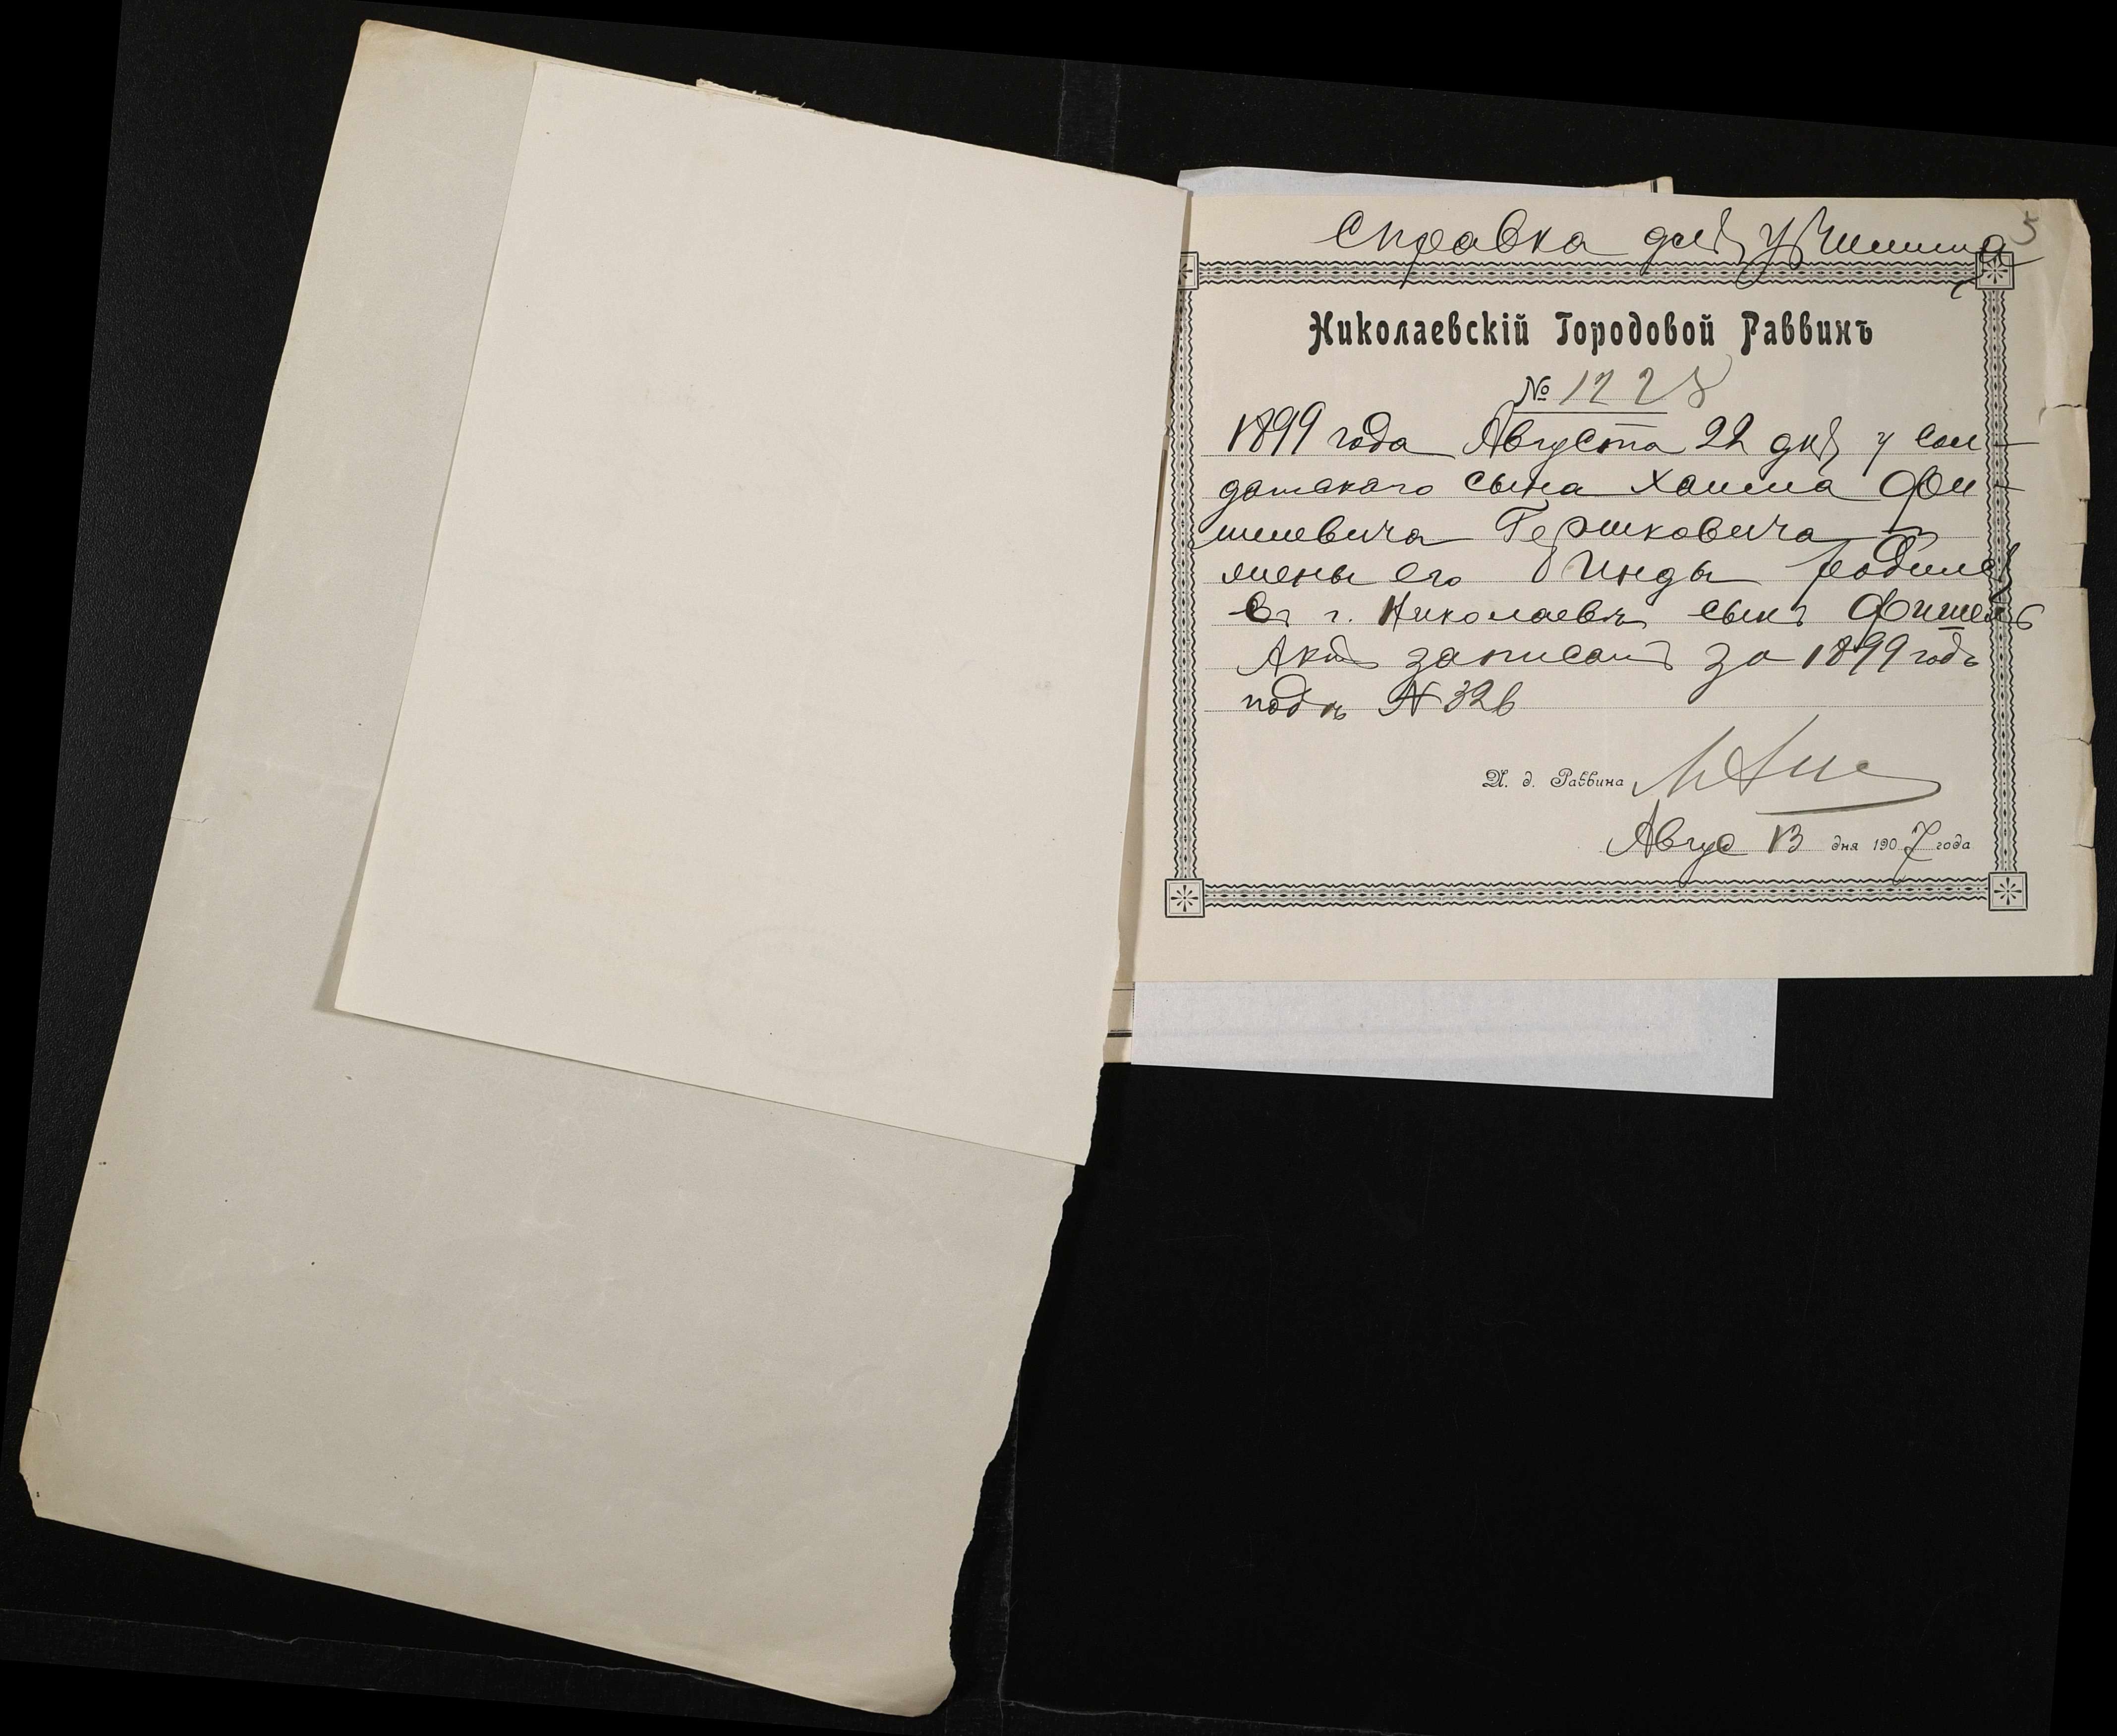 Справка для училища
5
Николаевскій Городовой Раввинъ
№ 1228
1899 года Августа 22 дня у сол-
датскаго сына Хаима Фи-
шелевича Гершковича
жены его Гинды родился
въ г. Николаевѣ сынъ Фишель
Актъ записанъ за 1899 годъ
подъ № 326
И. д. Раввина
Авгус 13 дня 1907 года